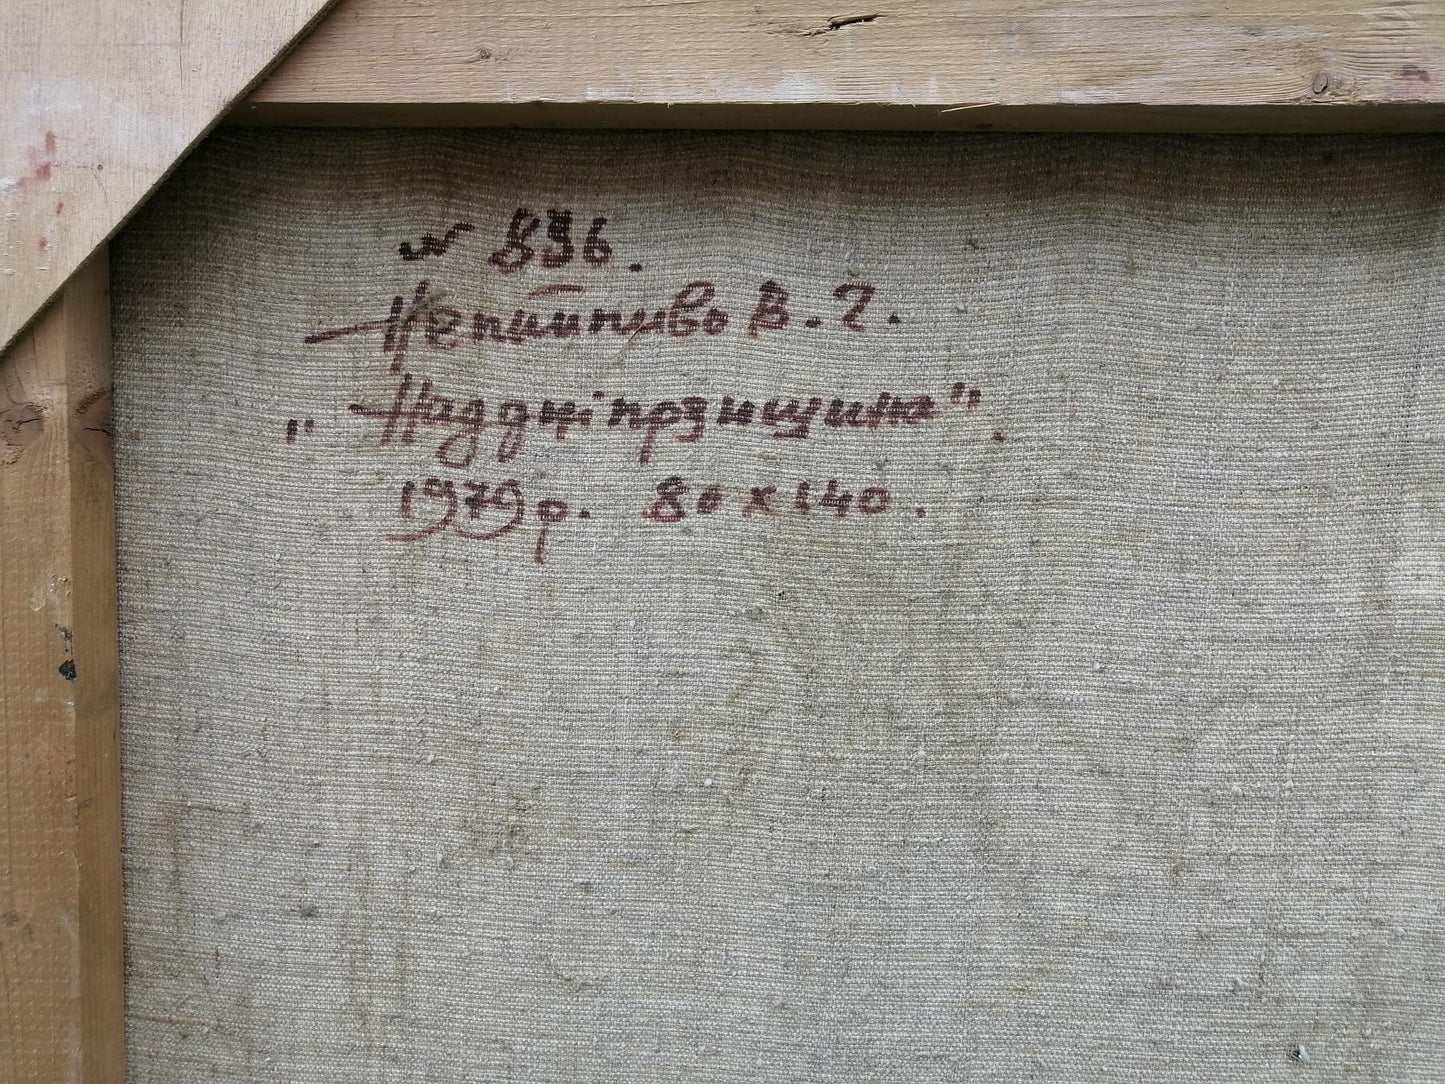 № 896.
Непийпиво В. Г.
"Наддніпрянщина".
1979 р. 80 х 140.